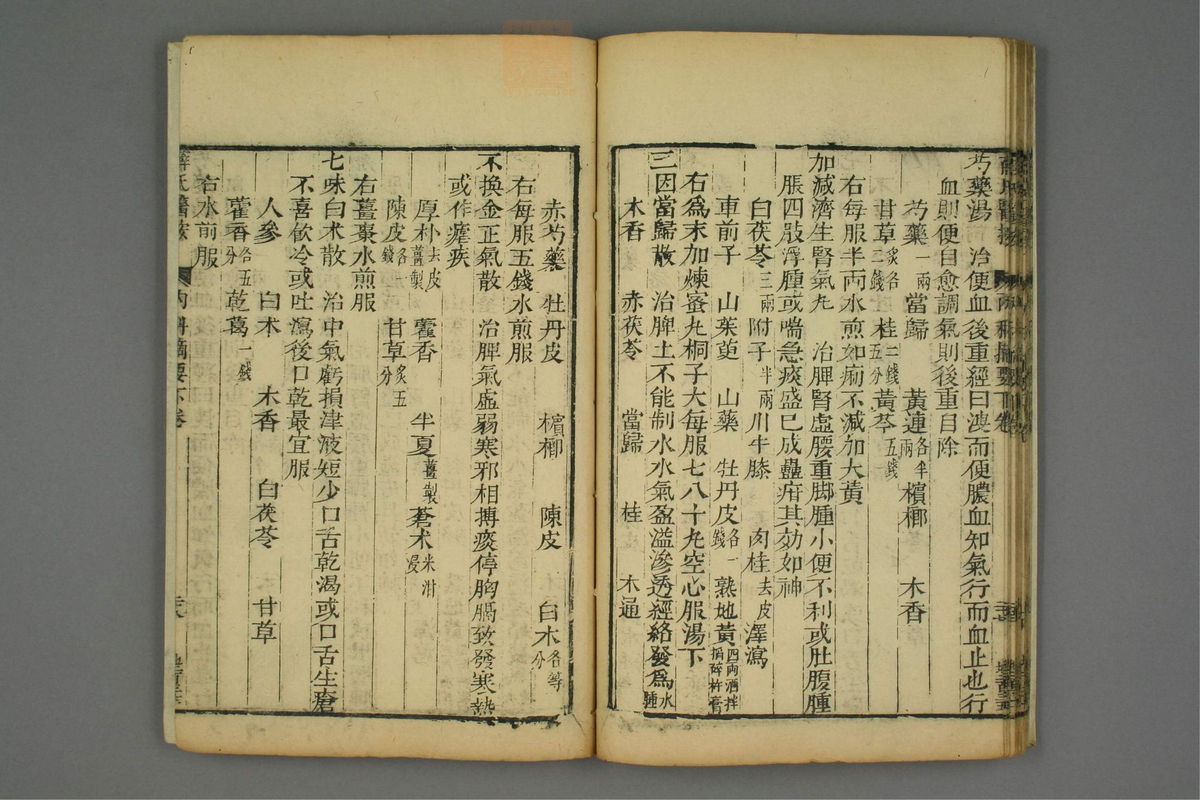 芍藥湯　治便血後重經曰溲而便膿血知氣行而血止也行
血則便自愈調氣則後重自除
芍藥一兩　當歸　黃連各半兩　檳榔　木香
甘草炙各二錢　桂二錢五分　黃芩五錢
右每服半兩水煎如痢不減加大黃
加減濟生腎氣丸　治脾腎虛腰重脚腫小便不利或肚腹腫
脹四肢浮腫或喘急痰盛已成蠱疳其効如神
白茯苓三兩　附子半兩　川牛膝　肉桂去皮　澤瀉
車前子　山茱萸　山藥　牡丹皮各一錢　熟地黃四兩酒拌搗碎杵膏
右為末加煉蜜丸桐子大每服七八十丸空心服湯下
三因當歸散　治脾土不能制水水氣盈溢滲透經絡發為水腫
木香　赤茯苓　當歸　桂　木通
赤芍藥　牡丹皮　檳榔　陳皮　白朮各等分
右每服五錢水煎服
不換金正氣散　治脾氣虛弱寒邪相搏痰停胸膈致發寒熱
或作瘧疾
厚朴去皮薑製　藿香　半夏薑製　蒼朮米泔浸
陳皮各錢　甘草炙五分
右薑棗水煎服
七味白朮散　治中氣虧損津液短少口舌乾渴或口舌生瘡
不喜飲冷或吐瀉後口乾最宜服
人參　白朮　木香　白茯苓　甘草
藿香各五分　乾葛一錢
右水煎服
薛氏醫案　內科摘要下卷